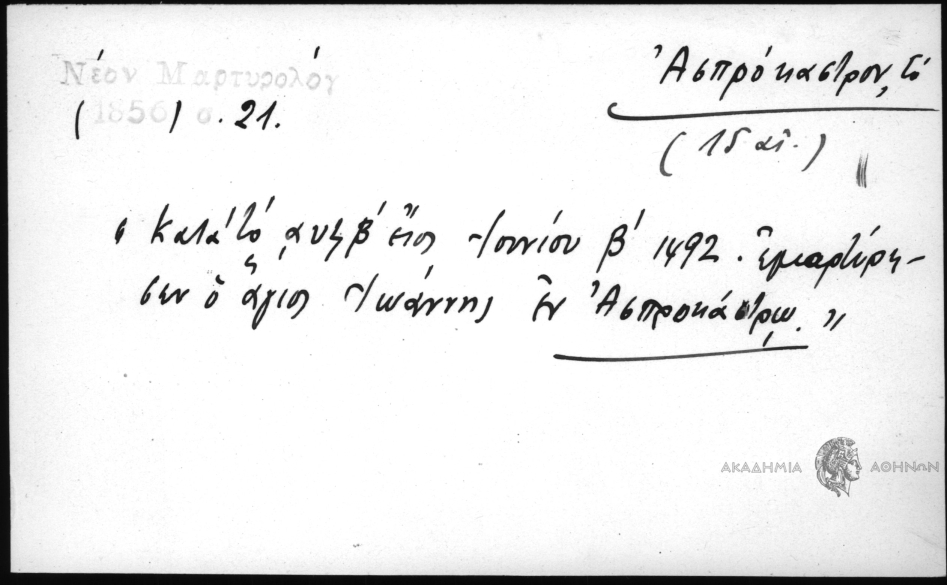 Νέον Μαρτυρολόγ
(1856) σ. 21.
Ἀσπρόκαστρον, τό
(15 αἰ.)
« Κατὰ τὸ ͵αυϟβ´ ἔτος Ἰουνίου β´ 1492. ἐμαρτύρη-
σεν ὁ ἅγιος Ἰωάννης ἐν Ἀσπροκάστρῳ. »
ΑΚΑΔΗΜΙΑ ΑΘΗΝΩΝ